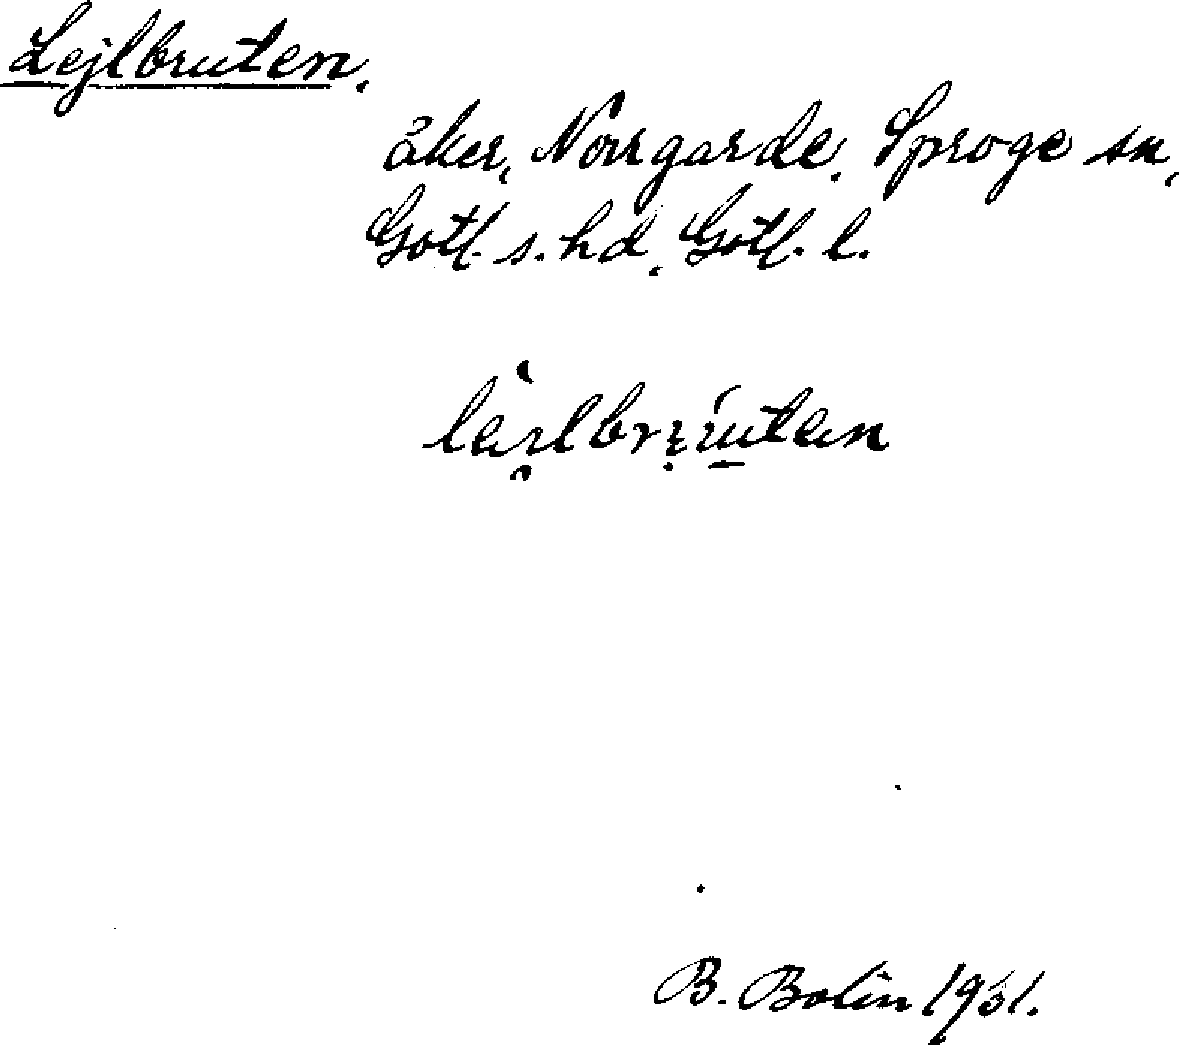 Lejlbruten.
åker, Norrgarde, Sproge sn,
Gotl. s. hd, Gotl. l.
B. Bolin 1931.